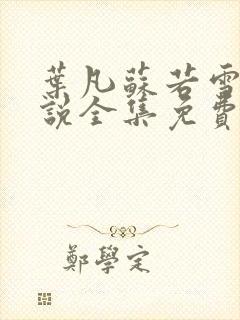 葉凡蘇若雪
說全集免費
鄭學定